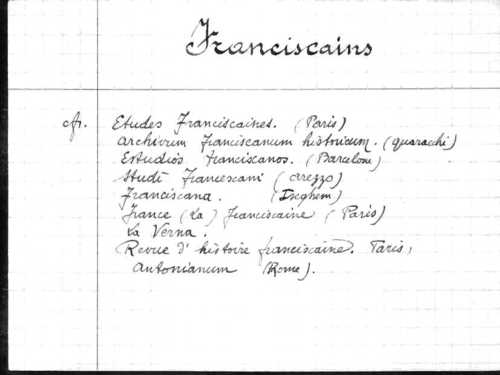 Franciscains
cfr. Etudes Franciscaines. (Paris)
Archivum Franciscanum historicum. (Quaracchi)
Estudios Franciscanos. (Barcelone)
Studi Francescani (Arezzo)
Franciscana. (Iseghem)
France (La) Franciscaine (Paris)
La Verna.
Revue d'histoire franciscaine. Paris,
Antonianum (Rome).